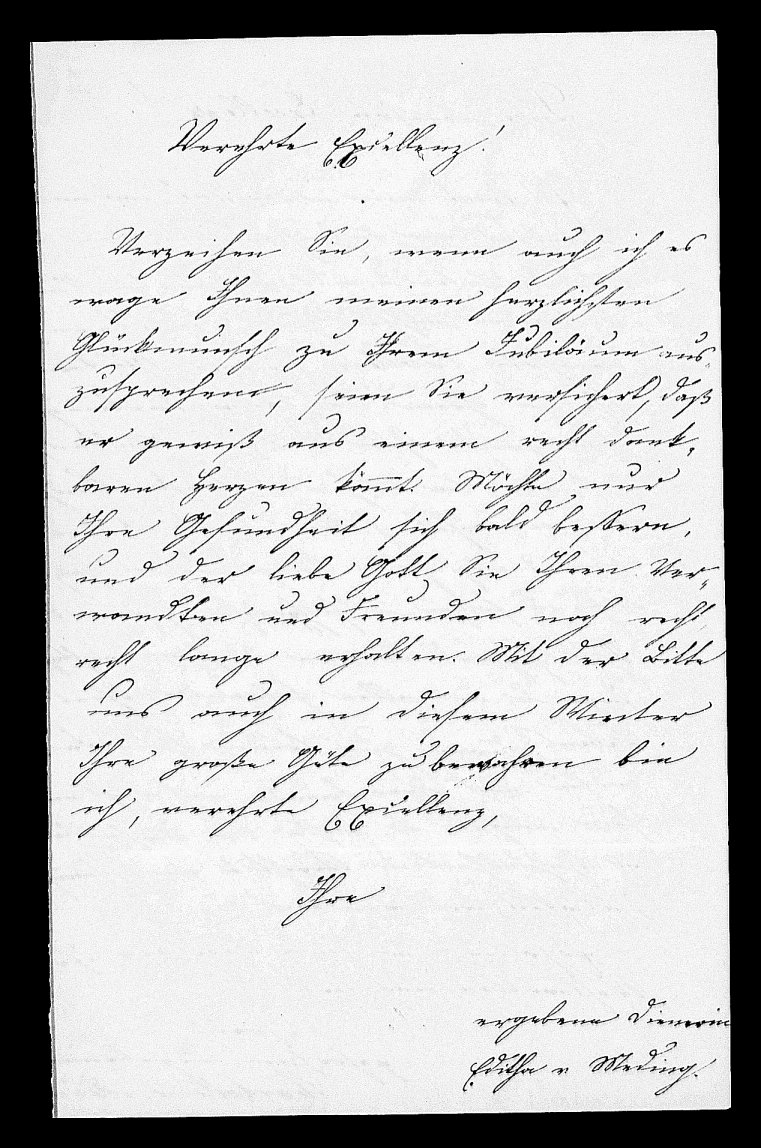 Verehrte Excellenz!
Verzeihen Sie, wenn auch ich es
wage Ihnen meinen herzlichsten
Glückwunsch zu Ihrem Jubiläum aus-
zusprechen, seien Sie versichert, daß
er gewiß aus einem recht dank-
baren Herzen kom̅t. Möchte nur
Ihre Gesundheit sich bald bessern,
und der liebe Gott Sie Ihren Ver-
wandten und Freunden noch recht,
recht lange erhalten. Mit der Bitte
uns auch in diesem Winter
Ihre große Güte zu bewahren bin
ich, verehrte Excellenz,
Ihre
ergebene Dienerin
Editha v Meding.